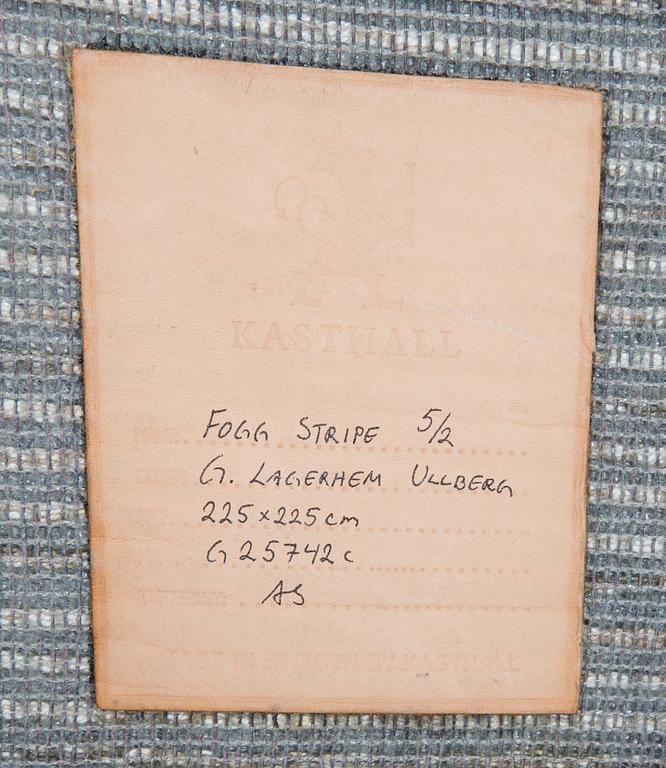 KASTHALL
FOGG STRIPE 5/2
G. LAGERHEM ULLBERG
225x225cm
G25742c
AS
MADE IN SWEDEN BY KASTHALL